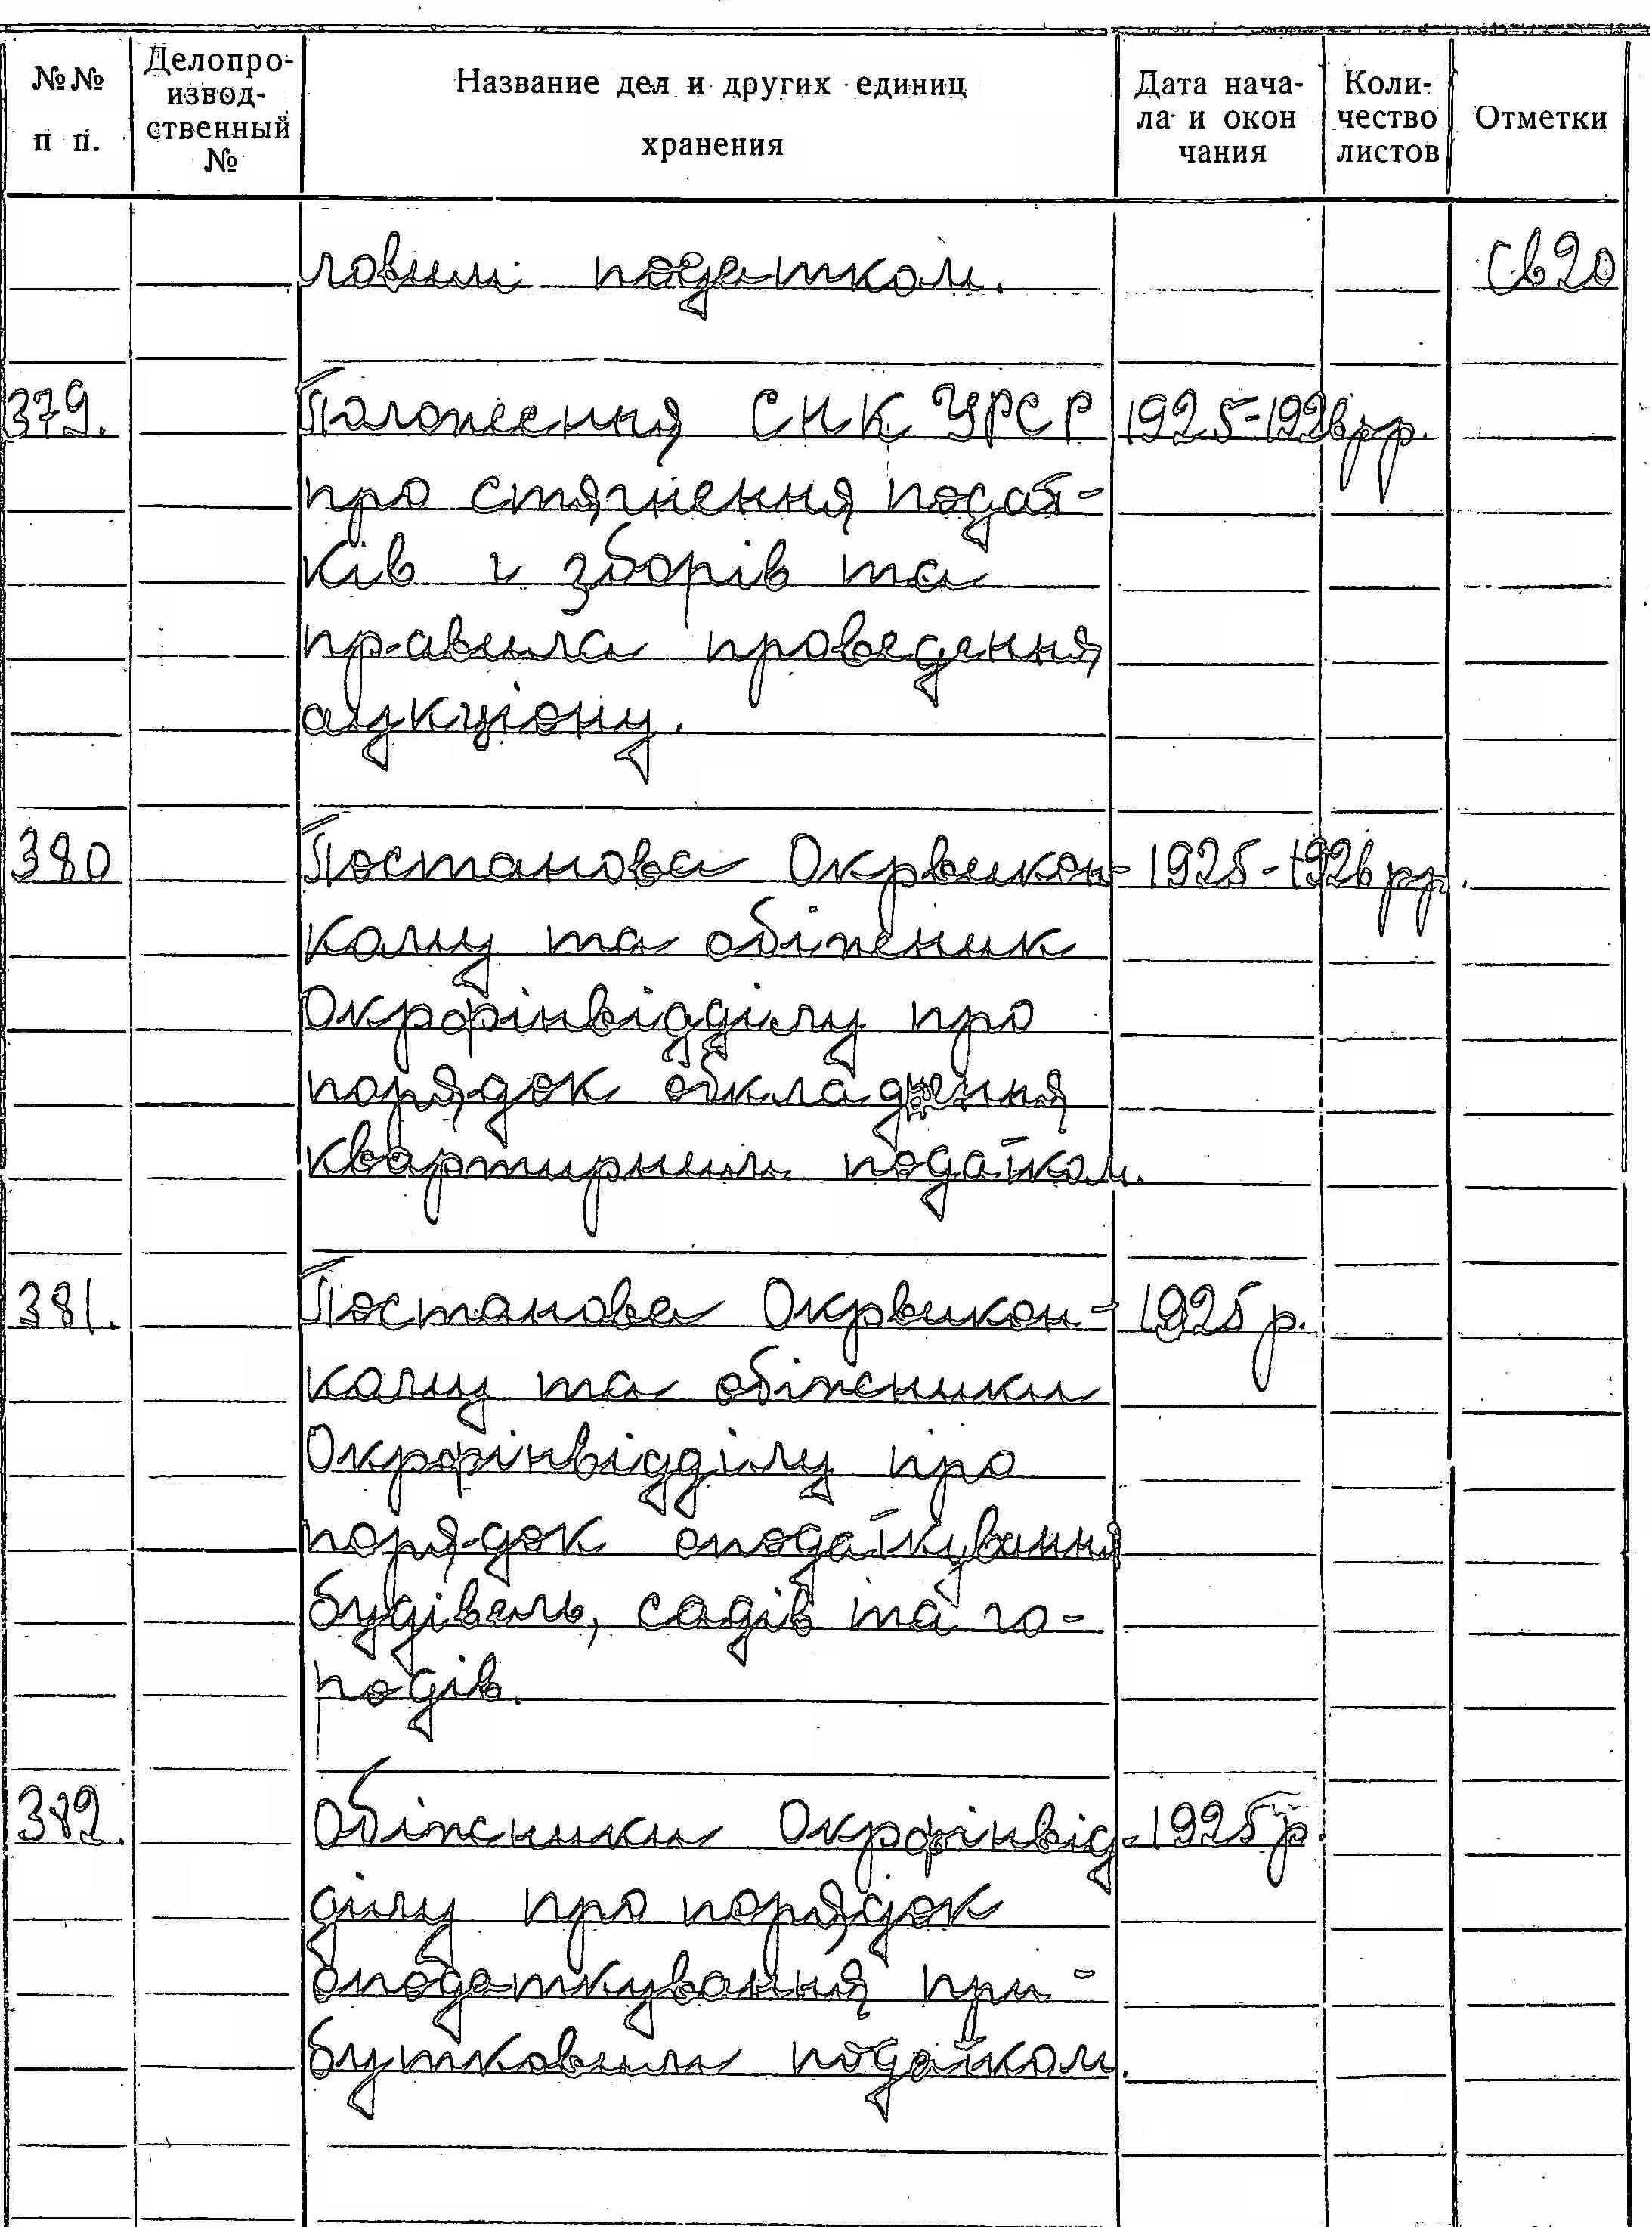 №№ п п.
Делопро-
извод-
ственный
№
Название дел и других единиц
хранения
Дата нача-
ла и окон
чания
Коли-
чество
листов
Отметки
ловим податком. Св20
379. Положення СНК УРСР 1925-1926 рр.
про стягнення подат-
ків і зборів та
правила проведення
аукціону.
380 Постанова Окрвикон- 1925-1926 рр.
кому та обіжник
Окрфінвідділу про
порядок обкладення
квартирним податком.
381. Постанова Окрвикон- 1925 р.
кому та обіжники
Окрфінвідділу про
порядок оподаткування
будівель, садів та го-
родів.
382. Обіжники Окрфінвід- 1925 р.
ділу про порядок
оподаткування при-
бутковим податком.